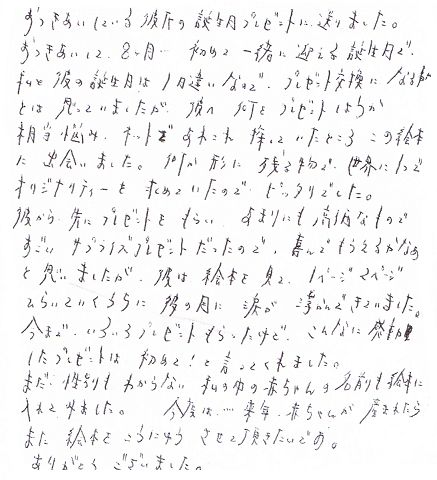 おつきあいしている彼氏の誕生日プレゼントに送りました。
おつきあいして、8ヶ月… 初めて一緒に迎える誕生日で、
私と彼の誕生日は1日違いなので、プレゼント交換になるかな
とは思っていましたが、彼へ何をプレゼントしようか
相当悩み、ネットであれこれ探していたところ この絵本
に出会いました。何か形に残る物で、世界に1つで
オリジナリティーを求めていたので ピッタリでした。
彼から先にプレゼントをもらい、あまりにも高価なもので
すごいサプライズプレゼントだったので、喜んでもらえるかなあ
と思いましたが、彼は絵本を見て、1ページ2ページ
ひらいていくうちに 彼の目に涙が浮かんできていました。
今まで、いろいろプレゼントもらったけど、こんなに感動
したプレゼントは初めて！と言ってくれました。
まだ性別もわからない私の中の赤ちゃんの名前も絵本に
入れてみました。 今度は…来年、赤ちゃんが産まれたら
また絵本をこうにゅうさせて頂きたいです。
ありがとうございました。